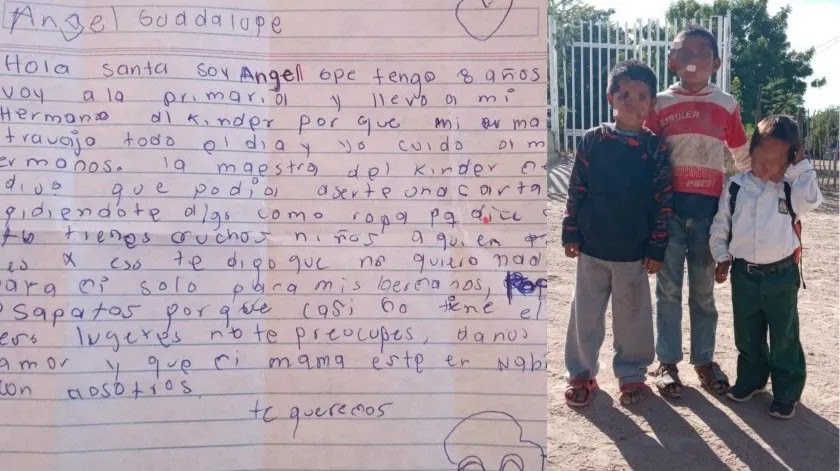 Angel Guadalupe
Hola Santa soy Angel ope tengo 8 años
voy a la primaria y llevo a mi
Hermano al kinder por que mi ma
travajo todo el dia y yo cuido a m
ermonos. la maestra del kinder
dijo que podia aserte una carta
pidiendote algo como ropa pa dice
tu tienes muchos niños a quien
es x eso te digo que no quiero nad
para mi solo para mis hermanos,
sapatos porque casi no tiene el
no te preocupes, danos
amor y que mi mama este en nabi
con nosotros.
te queremos